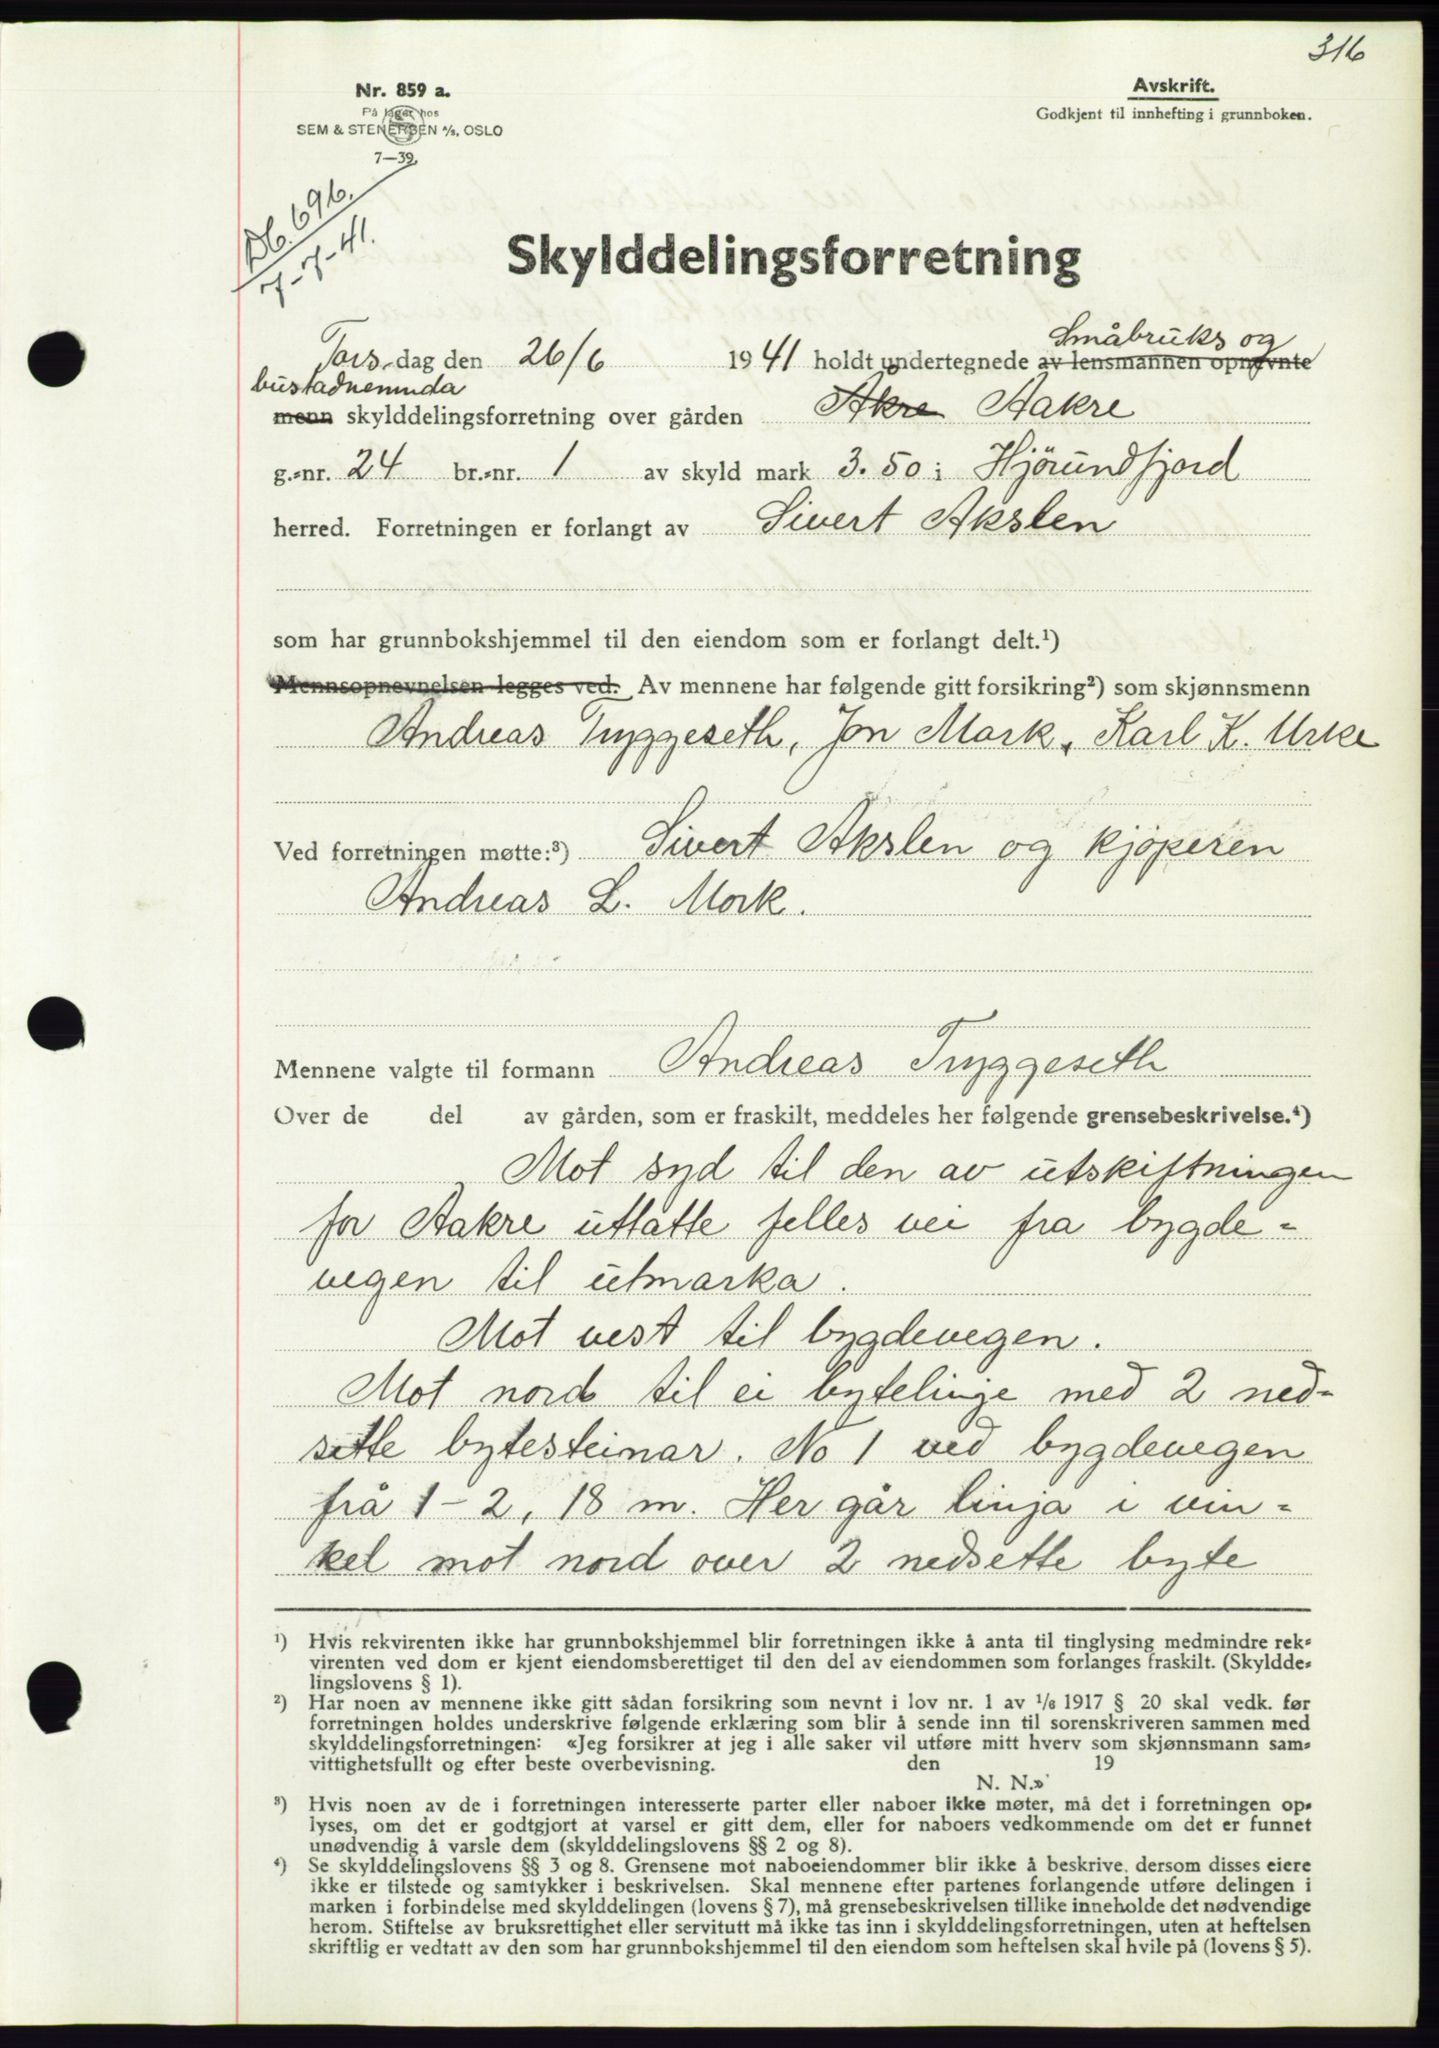 316
Nr. 859 a.
På lager hos
SEM & STENERSEN A/S, OSLO
7—39.
Avskrift.
Godkjent til innhefting i grunnboken.
Db. 696.
7-7-41.
Skylddelingsforretning
Småbruks og
Tors-dag den 26/6 1941 holdt undertegnede av lensmannen opnevnte
bustadnemnda
menn skylddelingsforretning over gården Akre Aakre
g.=nr. 24 br.=nr. 1 av skyld mark 3.50 i Hjörundfjord
herred. Forretningen er forlangt av Sivert Akslen
som har grunnbokshjemmel til den eiendom som er forlangt delt.¹)
Mennsopnevnelsen legges ved. Av mennene har følgende gitt forsikring²) som skjønnsmenn
Andreas Tryggeseth, Jon Mork, Karl K. Urke
Ved forretningen møtte:³) Sivert Akslen og kjøperen
Andreas L. Mork.
Mennene valgte til formann Andreas Tryggeseth
Over de del av gården, som er fraskilt, meddeles her følgende grensebeskrivelse.⁴)
Mot syd til den av utskiftningen
for Aakre uttatte felles vei fra bygde-
vegen til utmarka.
Mot vest til bygdevegen.
Mot nord til ei bytelinje med 2 ned-
sette bytesteinar. No 1 ved bygdevegen
frå 1-2, 18 m. Her går linja i vin-
kel mot nord over 2 nedsette byte
¹) Hvis rekvirenten ikke har grunnbokshjemmel blir forretningen ikke å anta til tinglysing medmindre rek=
virenten ved dom er kjent eiendomsberettiget til den del av eiendommen som forlanges fraskilt. (Skyldde=
lingslovens § 1).
²) Har noen av mennene ikke gitt sådan forsikring som nevnt i lov nr. 1 av 1/6 1917 § 20 skal vedk. før
forretningen holdes underskrive følgende erklæring som blir å sende inn til sorenskriveren sammen med
skylddelingsforretningen: «Jeg forsikrer at jeg i alle saker vil utføre mitt hverv som skjønnsmann sam=
vittighetsfullt og efter beste overbevisning. den 19
N. N.»
³) Hvis noen av de i forretningen interesserte parter eller naboer ikke møter, må det i forretningen op=
lyses, om det er godtgjort at varsel er gitt dem, eller for naboers vedkommende om det er funnet
unødvendig å varsle dem (skylddelingslovens §§ 2 og 8).
⁴) Se skylddelingslovens §§ 3 og 8. Grensene mot naboeiendommer blir ikke å beskrive, dersom disses eiere
ikke er tilstede og samtykker i beskrivelsen. Skal mennene efter partenes forlangende utføre delingen i
marken i forbindelse med skylddelingen (lovens § 7), må grensebeskrivelsen tillike inneholde det nødvendige
herom. Stiftelse av bruksrettighet eller servitutt må ikke tas inn i skylddelingsforretningen, uten at heftelsen
skriftlig er vedtatt av den som har grunnbokshjemmel til den eiendom som heftelsen skal hvile på (lovens § 5).